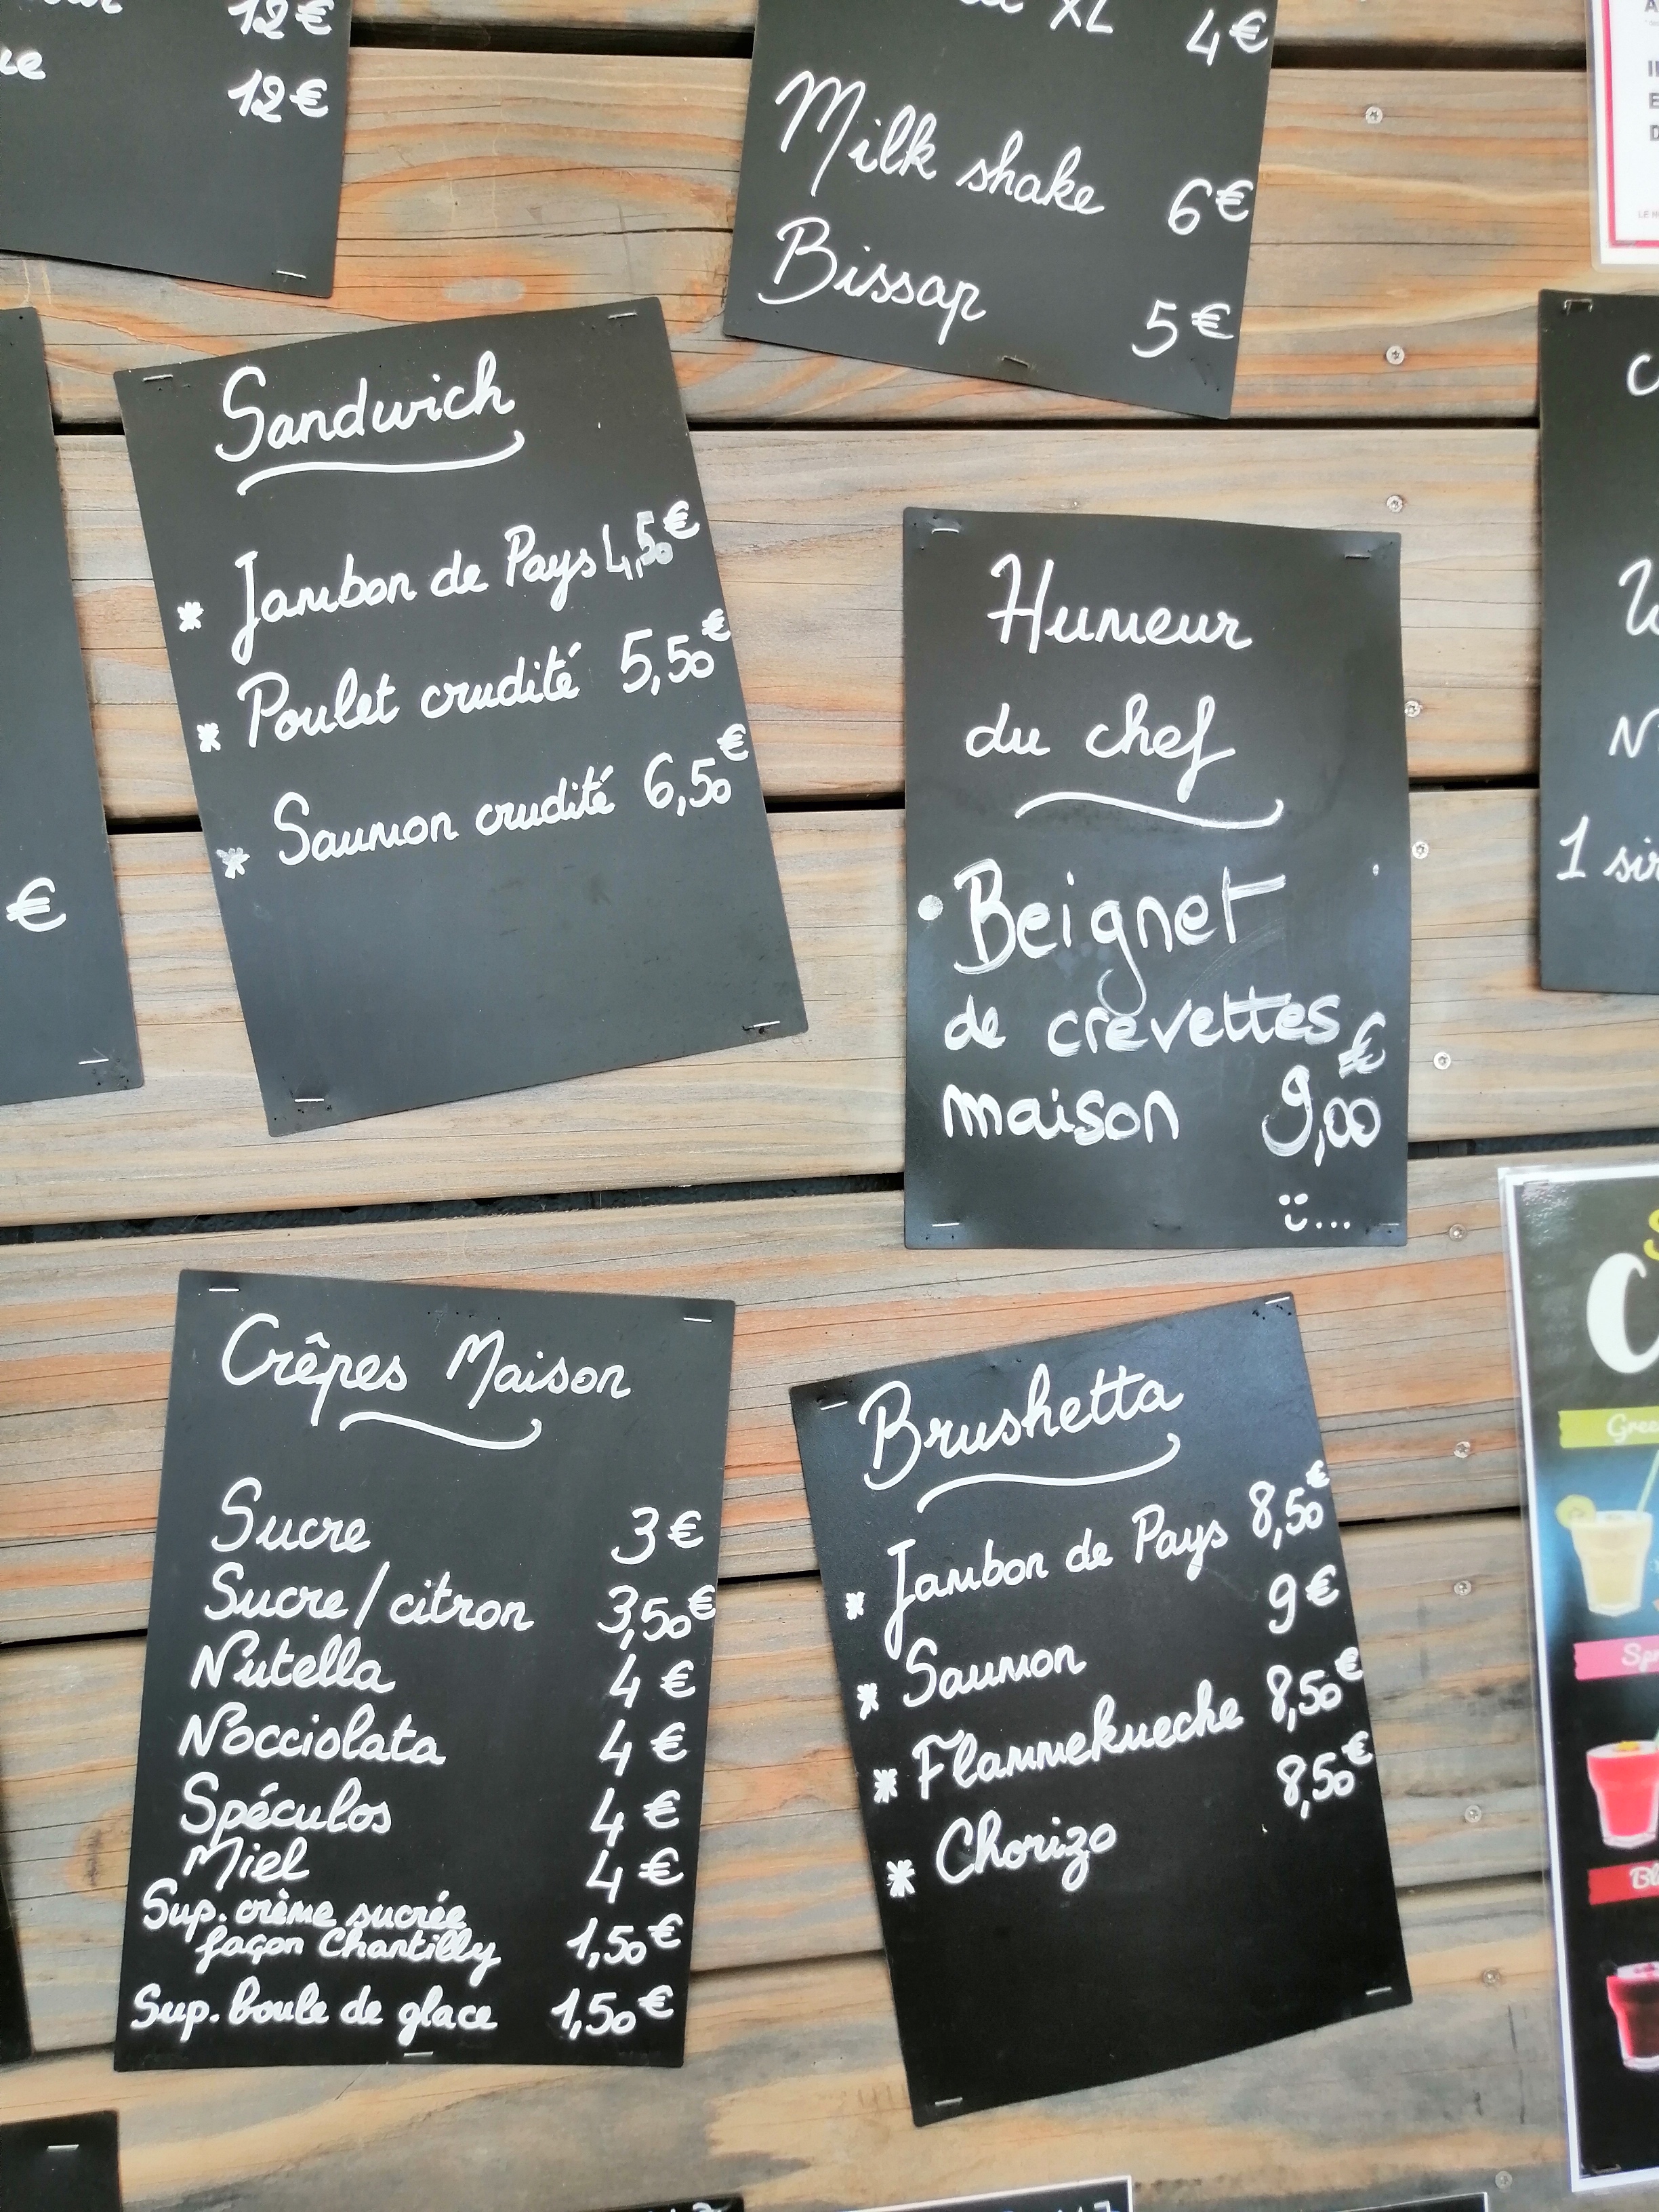 12€
12€
XL 4€
Milk shake 6€
Bissap 5€
Sandwich
* Jambon de Pays 4,50€
* Poulet crudité 5,50€
* Saumon crudité 6,50€
€
Humeur
du chef
Beignet
de crevettes
maison 9,00€
Crêpes Maison
Sucre 3€
Sucre/citron 3,50€
Nutella 4€
Nocciolata 4€
Spéculos 4€
Miel 4€
Sup. crème sucrée
façon Chantilly 1,50€
Sup. boule de glace 1,50€
Brushetta
* Jambon de Pays 8,50€
* Saumon 9€
* Flammekueche 8,50€
* Chorizo 8,50€
1